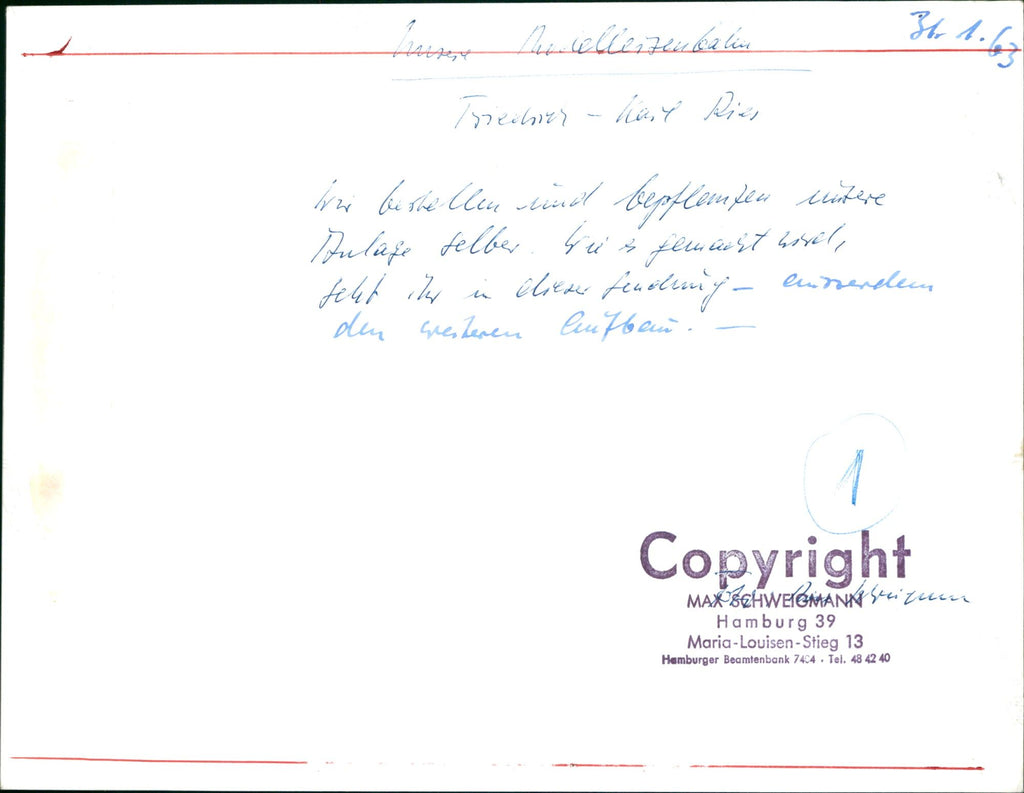 Unsere Modelleisenbahn
1.63
Friedrich - Karl Ries
Wir bestellen und bepflanzen unsere
Anlage selber. Wie es gemacht wird,
seht ihr in dieser Sendung - ausserdem
den weiteren Aufbau. —
1
Copyright
MAX SCHWEIGMANN
Hamburg 39
Maria-Louisen-Stieg 13
Hamburger Beamtenbank · Tel. 48 42 40